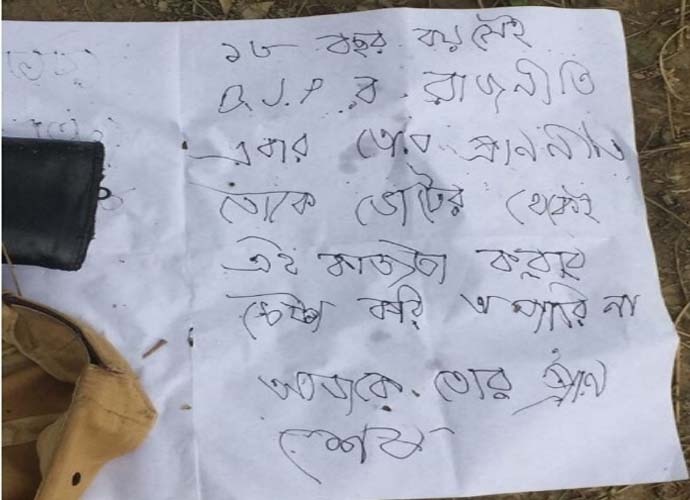 ১৮ বছর বয়সেই
B.J.P র রাজনীতি
এবার তোর প্রাণনীতি
তোকে ভোটের থেকেই
এই কাজটা করবার
চেষ্টা করি ও পারি না
আজকে তোর প্রাণ
শেষ